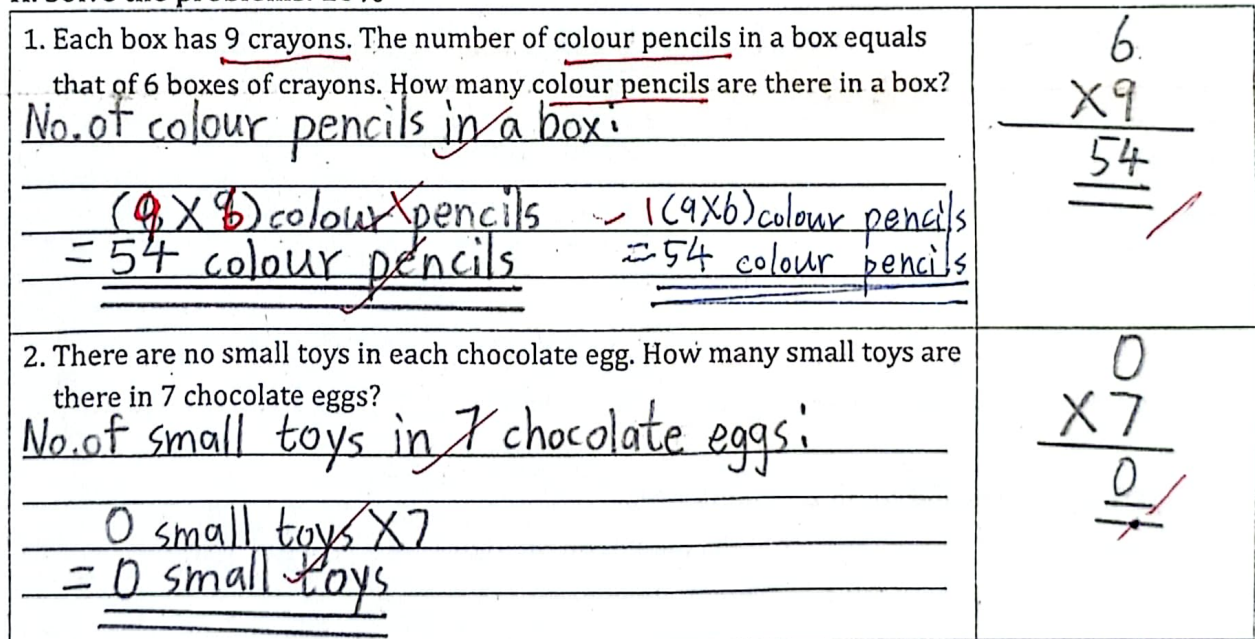 1. Each box has 9 crayons. The number of colour pencils in a box equals
that of 6 boxes of crayons. How many colour pencils are there in a box?
No. of colour pencils in a box:
( × ) colour pencils
= 54 colour pencils
1 (9×6) colour pencils
= 54 colour pencils
6
×9
54
2. There are no small toys in each chocolate egg. How many small toys are
there in 7 chocolate eggs?
No. of small toys in 7 chocolate eggs:
0 small toys ×7
= 0 small toys
0
×7
0